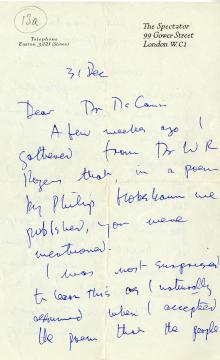 13a
The Spectator
99 Gower Street
London W.C.1
Telephone
Euston 3221 (5 lines)
31 Dec
Dear Dr McCann
A few weeks ago I
gathered from Dr W R
Rodgers that, in a poem
by Philip Hobsbaum we
published, you were
mentioned.
I was most surprised
to learn this as I naturally
assumed when I accepted
the poem that the people